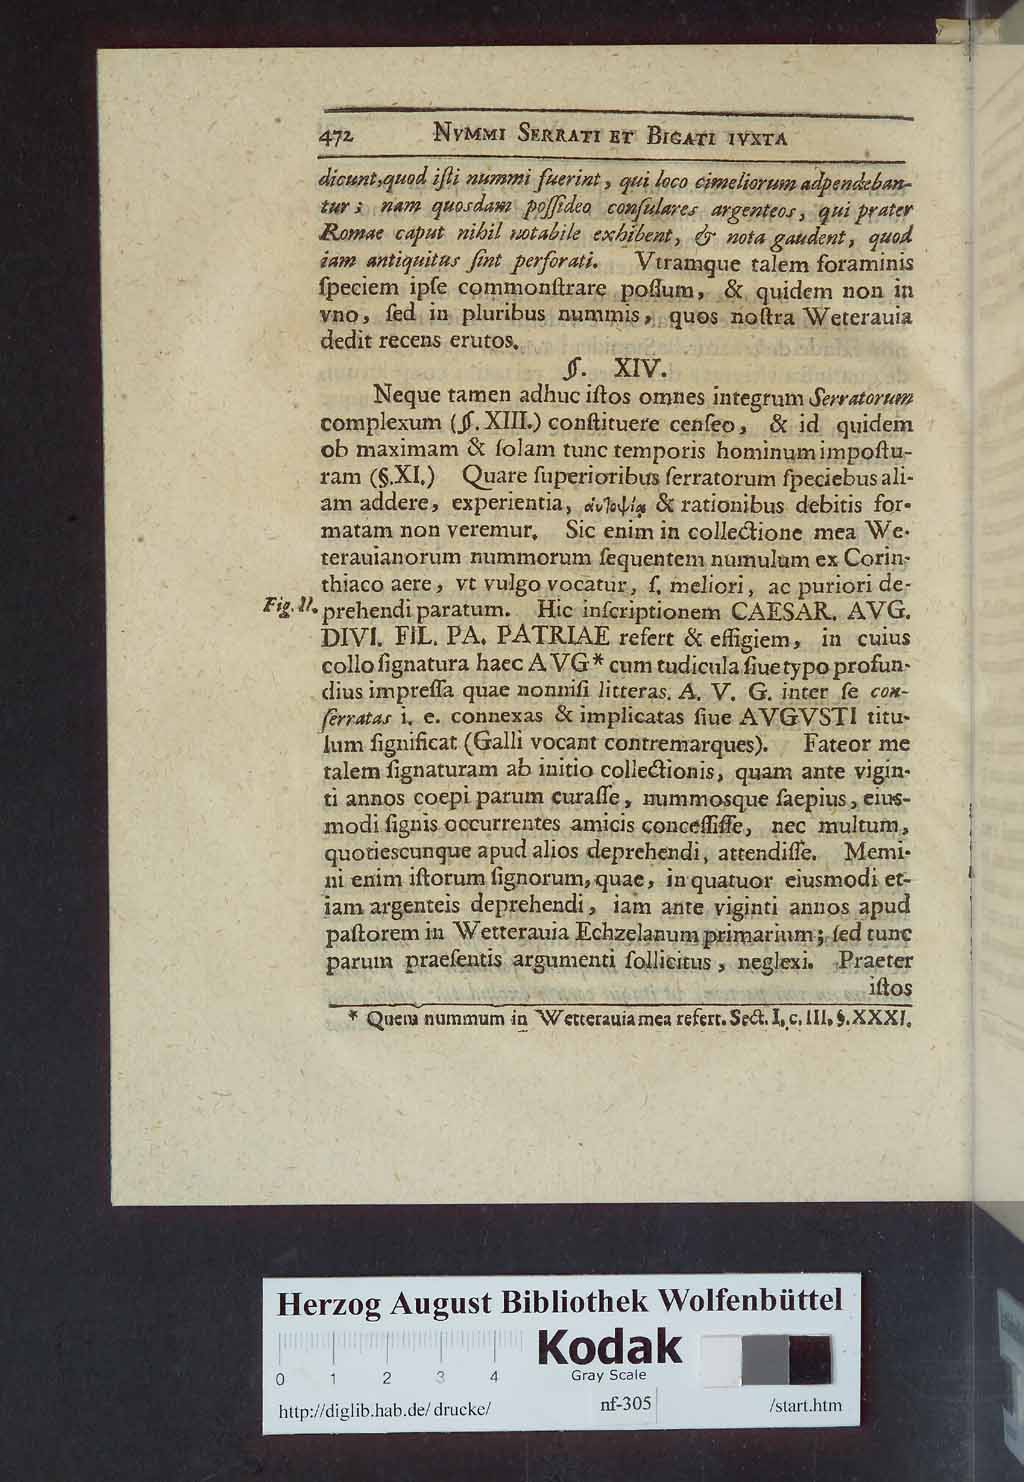 472 NVMMI SERRATI ET BIGATI IVXTA
dicunt, quod iſti nummi fuerint, qui loco cimeliorum adpendeban-
tur; nam quosdam poſſideo conſulares argenteos, qui præter
Romae caput nihil notabile exhibent, & nota gaudent, quod
iam antiquitus ſint perforati. Vtramque talem foraminis
ſpeciem ipſe commonſtrare poſſum, & quidem non in
vno, ſed in pluribus nummis, quos noſtra Weterauia
dedit recens erutos.
§. XIV.
Neque tamen adhuc iſtos omnes integrum Serratorum
complexum (§. XIII.) conſtituere cenſeo, & id quidem
ob maximam & ſolam tunc temporis hominum impoſtu-
ram (§.XI.) Quare ſuperioribus ſerratorum ſpeciebus ali-
am addere, experientia, ἀυτοψίᾳ & rationibus debitis for-
matam non veremur. Sic enim in collectione mea We-
terauianorum nummorum ſequentem numulum ex Corin-
thiaco aere, vt vulgo vocatur, ſ. meliori, ac puriori de-
Fig. II. prehendi paratum. Hic inſcriptionem CAESAR. AVG.
DIVI. FIL. PA. PATRIAE refert & effigiem, in cuius
collo ſignatura haec AVG* cum tudicula ſiue typo profun-
dius impreſſa quae nonniſi litteras. A. V. G. inter ſe con-
ſerratas i. e. connexas & implicatas ſiue AVGVSTI titu-
lum ſignificat (Galli vocant contremarques). Fateor me
talem ſignaturam ab initio collectionis, quam ante vigin-
ti annos coepi parum curaſſe, nummosque ſaepius, eius-
modi ſignis occurrentes amicis conceſſiſſe, nec multum,
quotiescunque apud alios deprehendi, attendiſſe. Memi-
ni enim iſtorum ſignorum, quae, in quatuor eiusmodi et-
iam argenteis deprehendi, iam ante viginti annos apud
paſtorem in Wetterauia Echzelanum primarium; ſed tunc
parum praeſentis argumenti ſollicitus, neglexi. Praeter
iſtos
* Quem nummum in Wetterauia mea refert. Sect. I. c. III. §. XXXI.
Herzog August Bibliothek Wolfenbüttel
Kodak
Gray Scale
0 1 2 3 4
http://diglib.hab.de/drucke/ nf-305 /start.htm